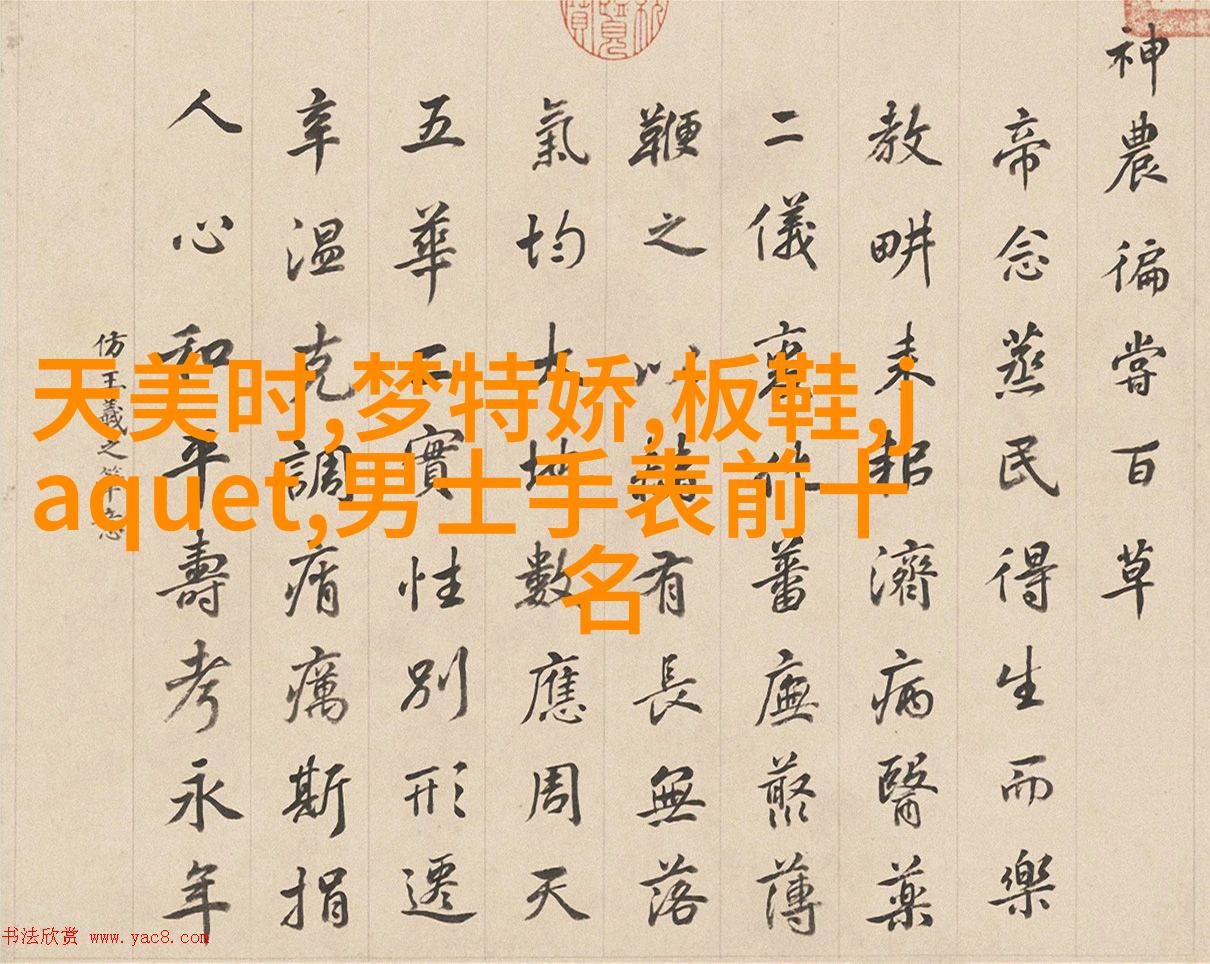 天美时,梦特娇,板鞋,j
aquet,男士手表前十
名
神農徧嘗百草
帝念蒸民得生而樂
教畊耒耜濟病醫藥
二儀蕃廡藂薄
鞭之以有長無落
氣均大地數應周天
五華實性別形遷
辛溫克調痟癘斯捐
人心和平壽考永年
仿王羲之筆意
书法欣赏 www.yac8.com